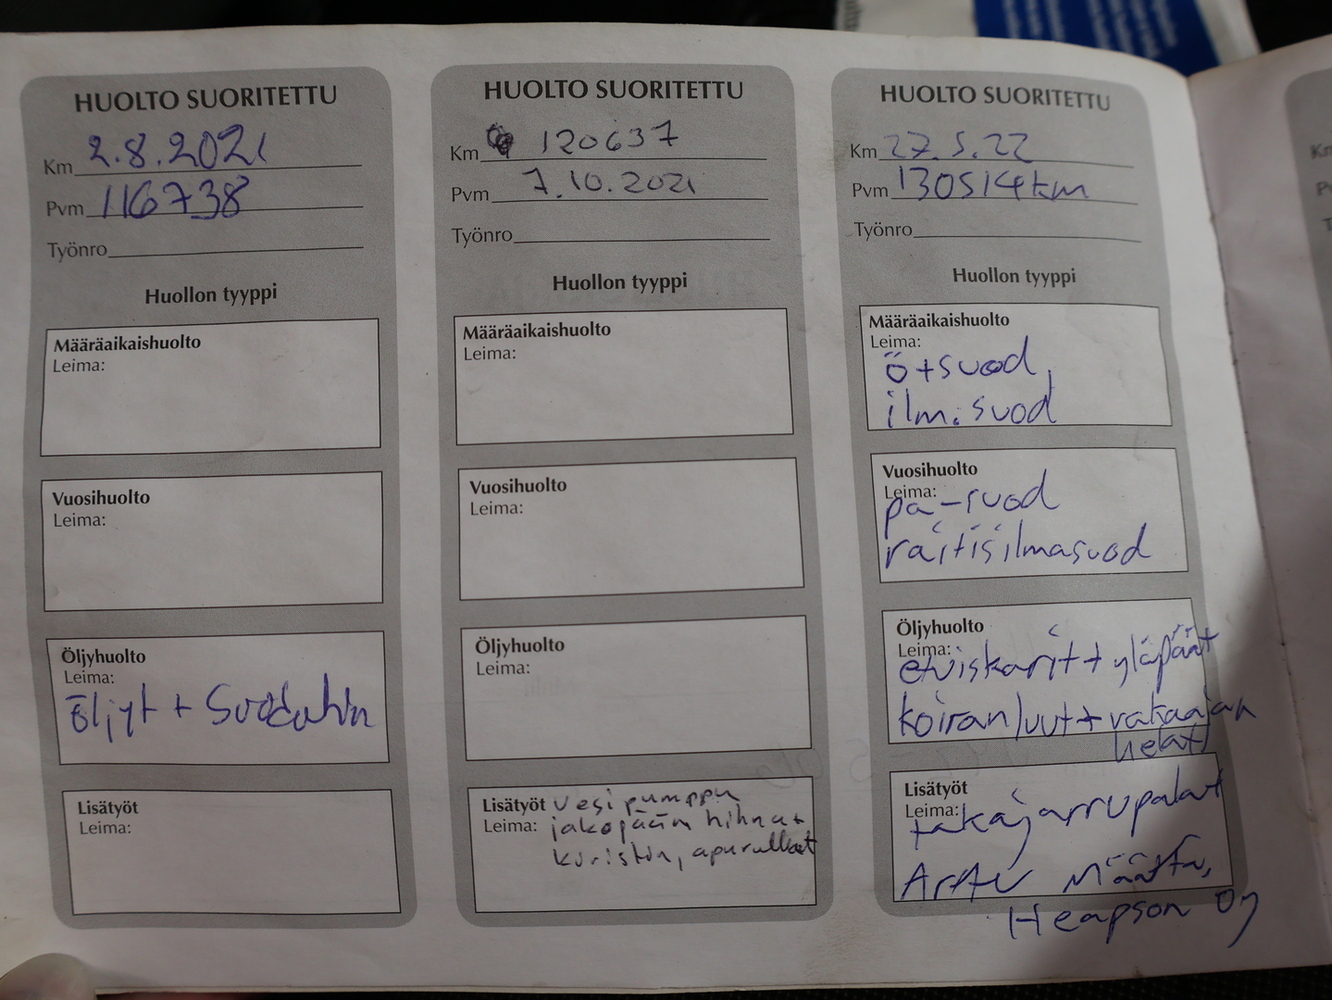 HUOLTO SUORITETTU
Km 2.8.2021
Pvm 116738
Työnro
Huollon tyyppi
Määräaikaishuolto
Leima:
Vuosihuolto
Leima:
Öljyhuolto
Leima:
Öljyt + Suodatin
Lisätyöt
Leima:
HUOLTO SUORITETTU
Km 120637
Pvm 7.10.2021
Työnro
Huollon tyyppi
Määräaikaishuolto
Leima:
Vuosihuolto
Leima:
Öljyhuolto
Leima:
Lisätyöt Vesipumppu
Leima: jakopään hihna+
kiristin, apurullat
HUOLTO SUORITETTU
Km 27.5.22
Pvm 130514km
Työnro
Huollon tyyppi
Määräaikaishuolto
Leima:
ö+suod,
ilm.suod
Vuosihuolto
Leima:
pa-suod
raitisilmasuod
Öljyhuolto
Leima:
etuiskarit + yläpäät
koiranluut + vakaajan
helat
Lisätyöt
Leima:
takajarrupalat
Arttu Määttä,
Heapson Oy